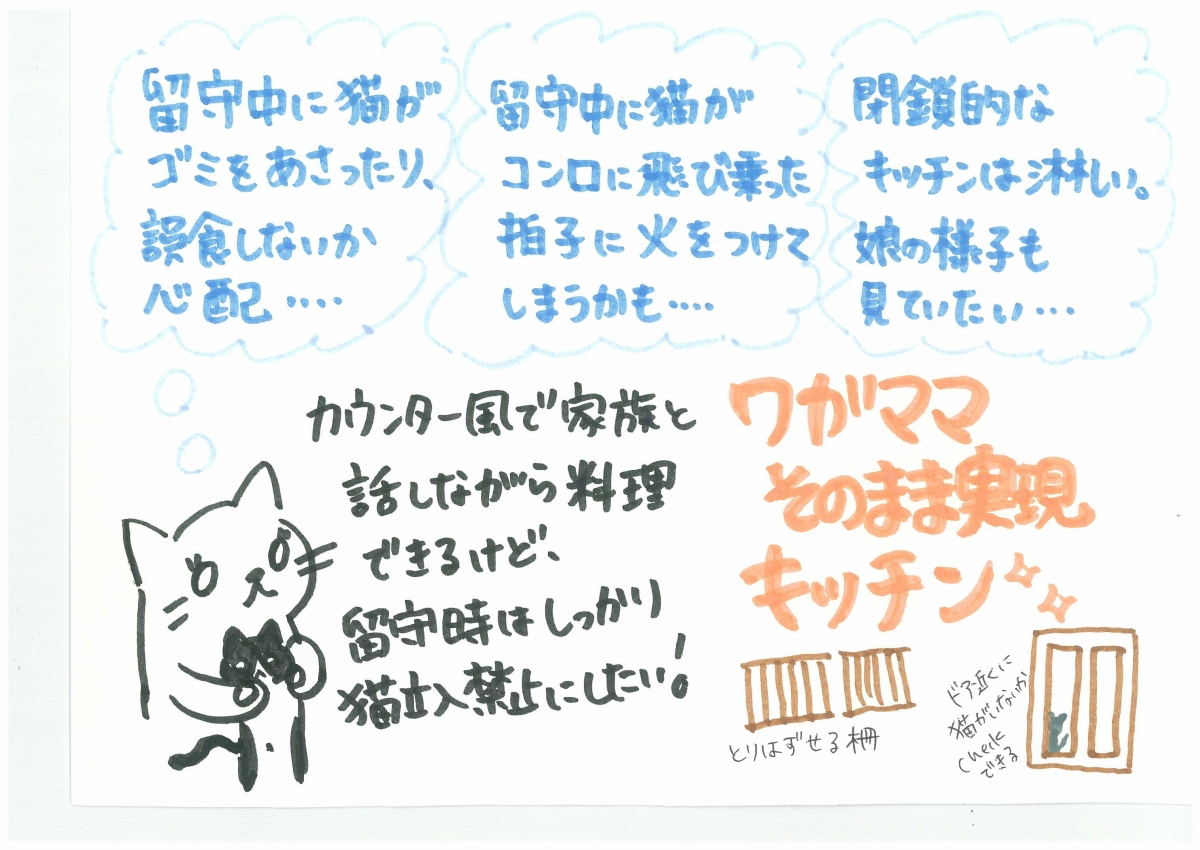 留守中に猫が
ゴミをあさったり、
誤食しないか
心配....
留守中に猫が
コンロに飛び乗った
拍子に火をつけて
しまうかも....
閉鎖的な
キッチンは淋しい。
娘の様子も
見ていたい...
カウンター風で家族と
話しながら料理
できるけど、
留守時はしっかり
猫立入禁止にしたい!
ワガママ
そのまま実現
キッチン
とりはずせる柵
ドア近くに
猫がいないか
Check
できる